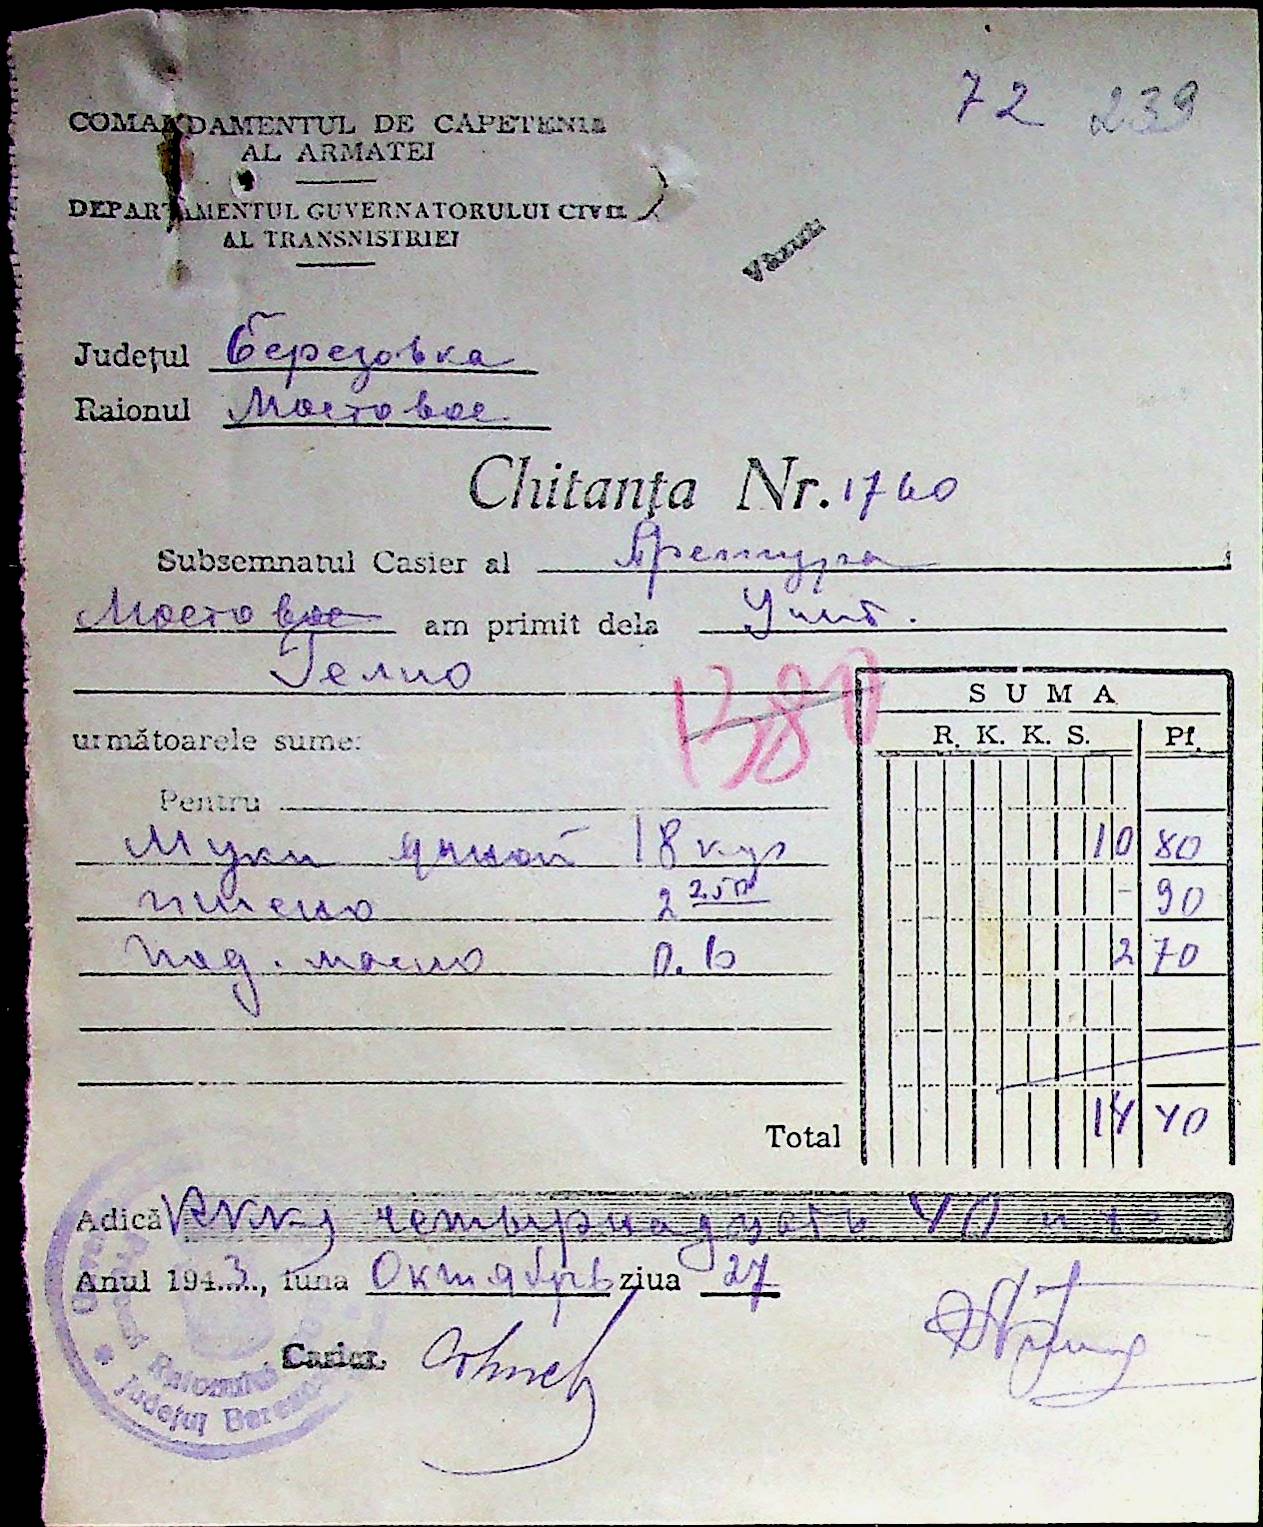 72 239
COMANDAMENTUL DE CAPETENIE
AL ARMATEI
DEPARTAMENTUL GUVERNATORULUI CIVIL
AL TRANSNISTRIEI
Județul Березовка
Raionul Мостовое
Chitanța Nr. 1760
Subsemnatul Casier al Претура
Мостовое am primit dela
Гелио
1380
SUMA
următoarele sume:
R. K. K. S. Pf.
Pentru
Муки ячной 18 кгр 10 80
пшено 2 250 - 90
под. масло 0.6 2 70
Total 14 40
Adică RKKS четырнадцать 40
Anul 1943, luna Октябрь ziua 27
Casier,
Raionului
Județul